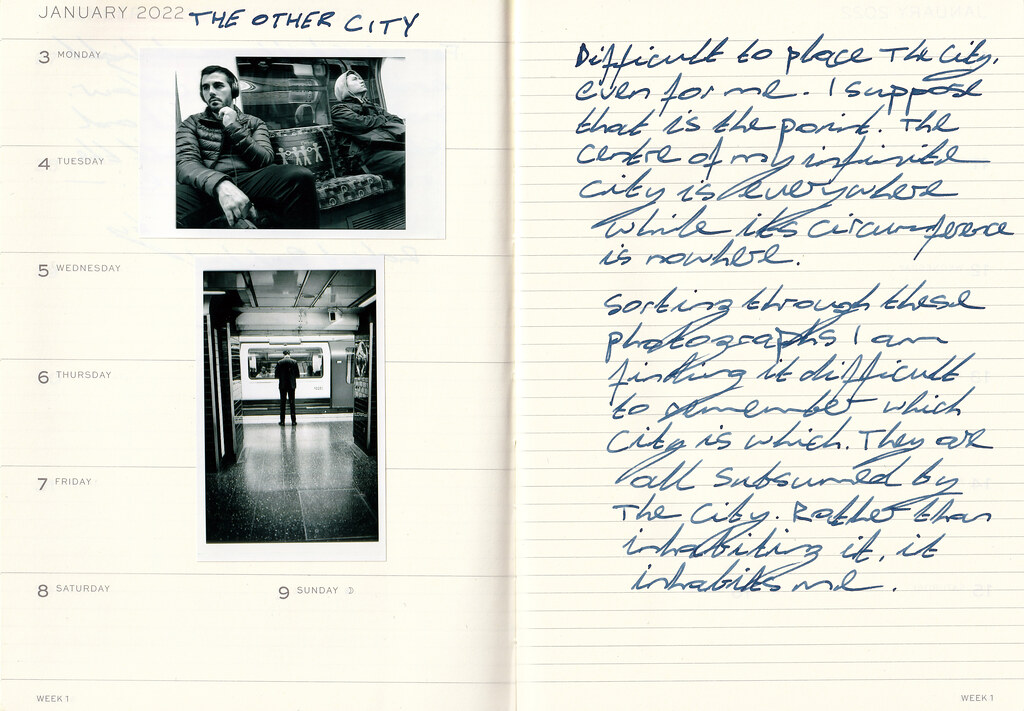 JANUARY 2022 THE OTHER CITY
3 MONDAY
4 TUESDAY
5 WEDNESDAY
6 THURSDAY
7 FRIDAY
8 SATURDAY
9 SUNDAY
WEEK 1
Difficult to place The City,
even for me. I suppose
that is the point. The
centre of my infinite
city is everywhere
while its circumference
is nowhere.
Sorting through these
photographs I am
finding it difficult
to remember which
city is which. They are
all subsumed by
The City. Rather than
inhabiting it, it
inhabits me.
WEEK 1